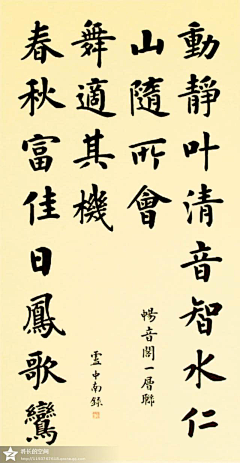 動靜叶清音智水仁
山隨所會
暢音閣一層聯
春秋富佳日鳳歌鸞
舞適其機